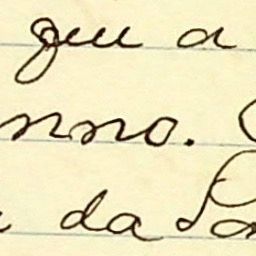 que a
nno.
da